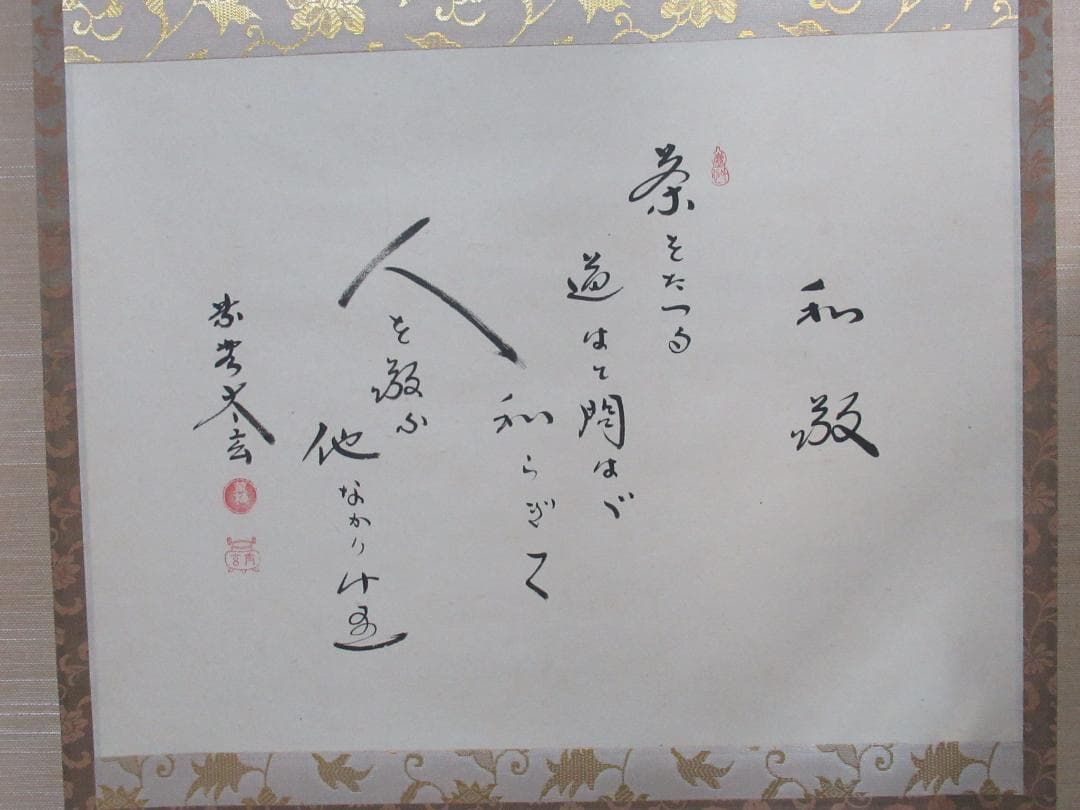 和敬
茶をたつる
道はと問はゞ
和らぎて
人を敬ふ
他なかりけ里